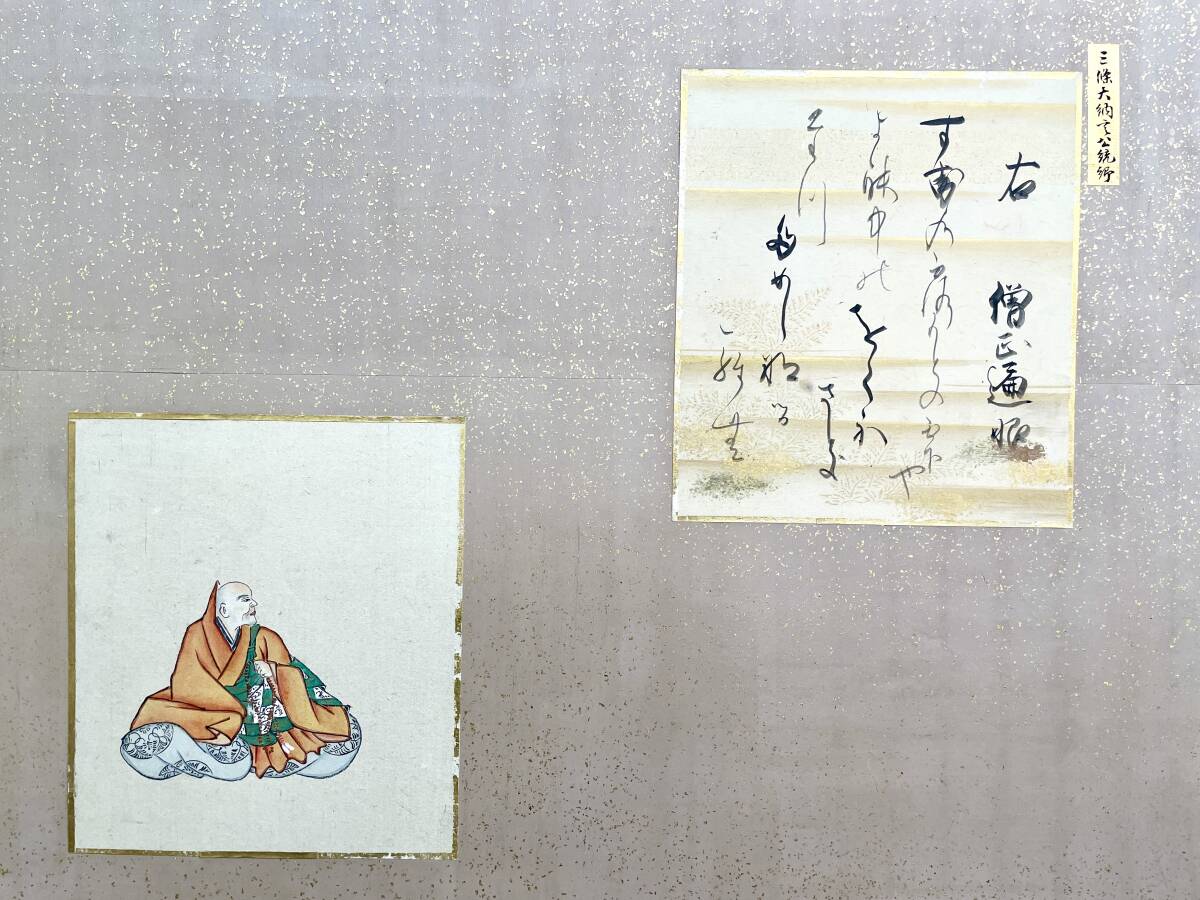 三條大納言公統卿
右　僧正遍昭
すゑの露もとの雫や
よの中のをくれさき
たつ
ためしなる